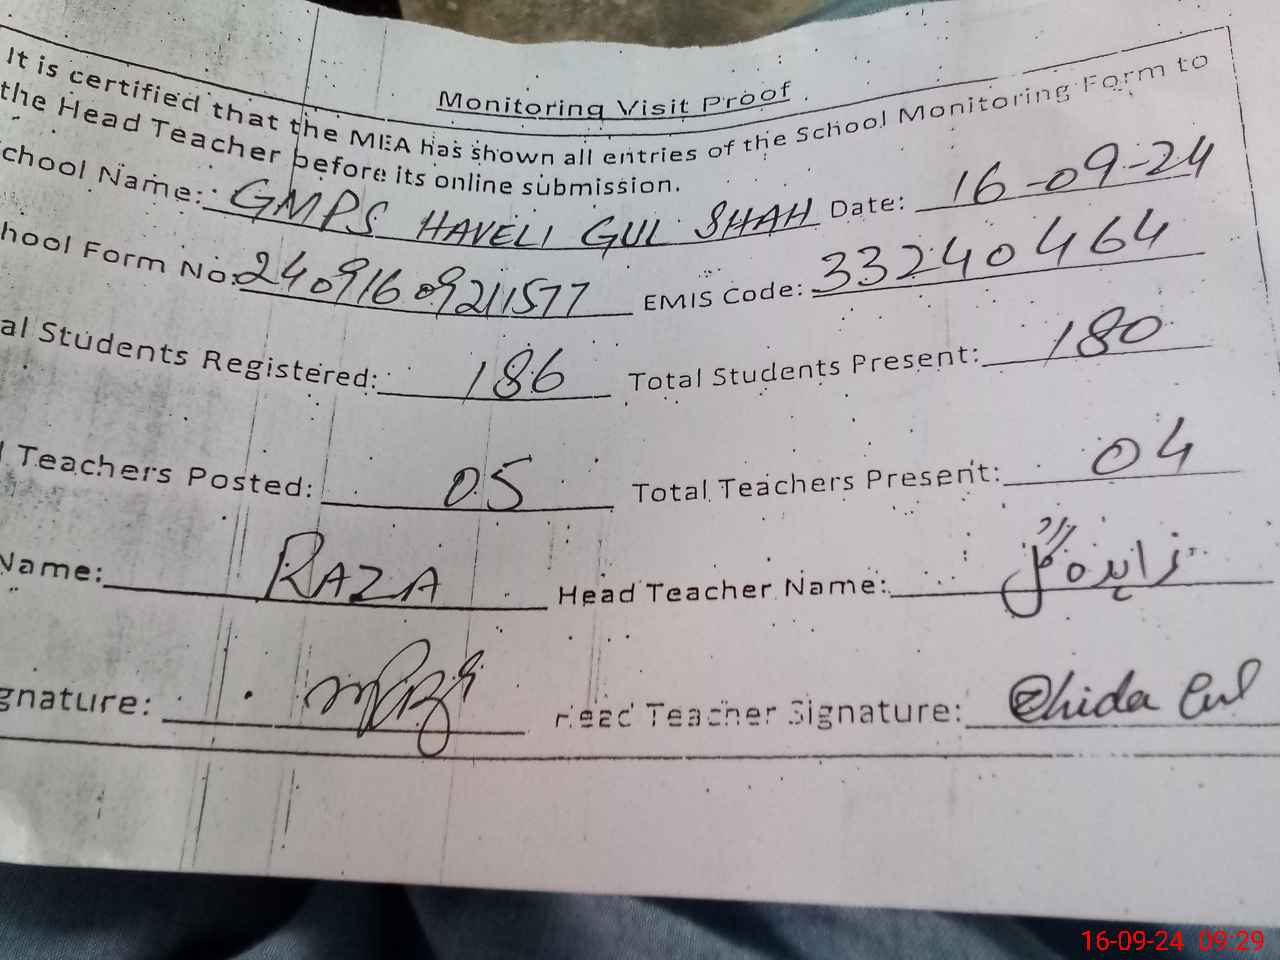 Monitoring Visit Proof
It is certified that the MEA has shown all entries of the School Monitoring Form to
the Head Teacher before its online submission.
chool Name: GMPS HAVELI GUL SHAH Date: 16-09-24
hool Form No: 24091609211577 EMIS Code: 33240464
al Students Registered: 186 Total Students Present: 180
l Teachers Posted: 05 Total Teachers Present: 04
Name: RAZA Head Teacher Name: زاہدہ گل
gnature: Head Teacher Signature:
16-09-24 09:29